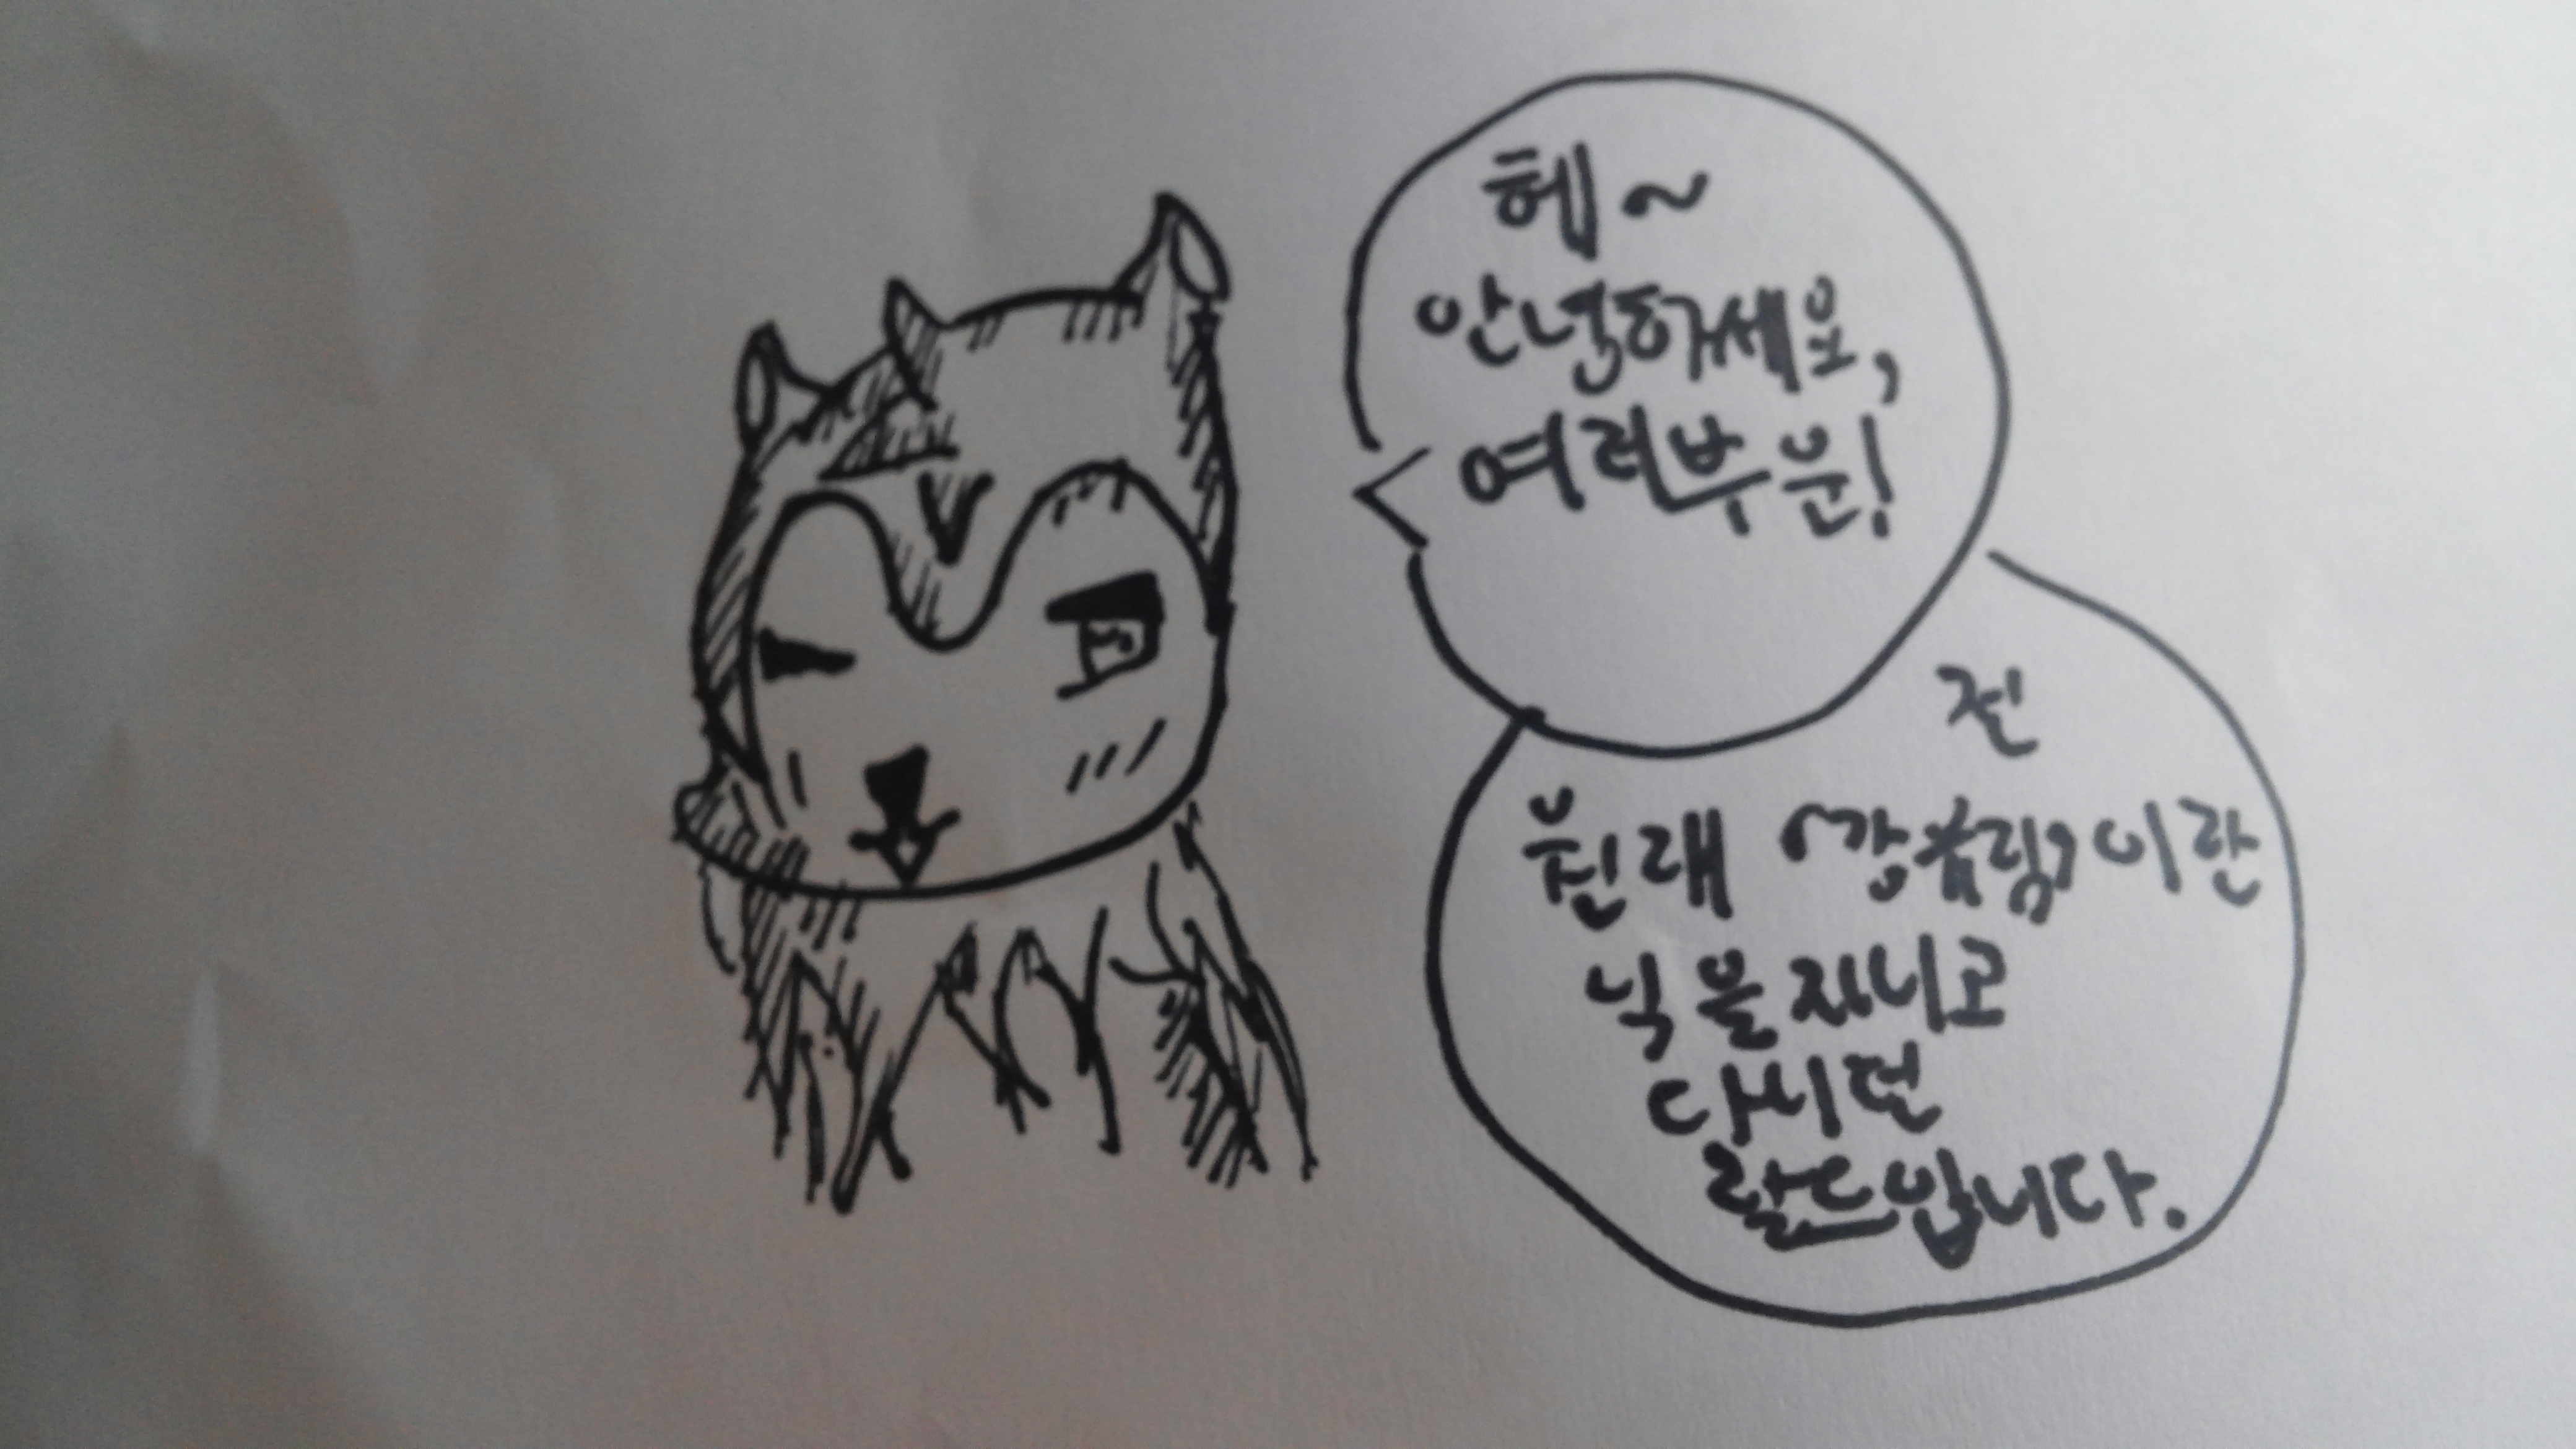 헤~
안녕하세요,
여러부운!
전
원래 이란
닉을 지니고
다니던
랄드입니다.